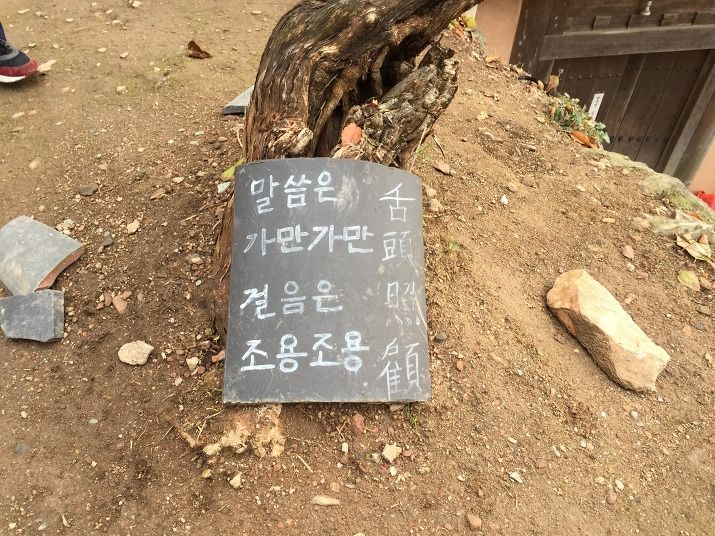 말씀은
가만가만
걸음은
조용조용
舌頭照顧